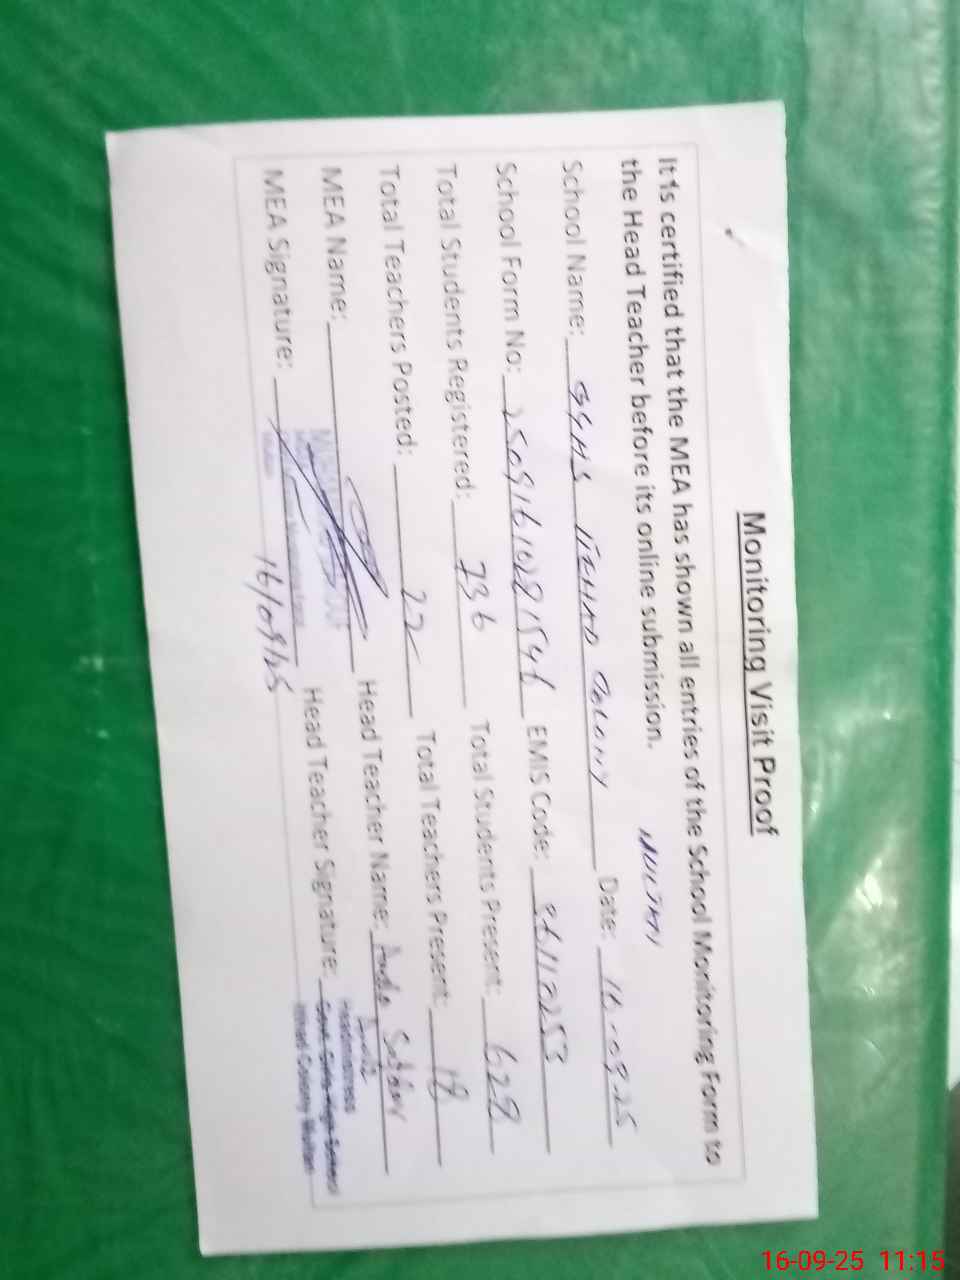 Monitoring Visit Proof
It is certified that the MEA has shown all entries of the School Monitoring Form to
the Head Teacher before its online submission. MULTAN
School Name: GGHS Date: 16-09-25
School Form No: EMIS Code:
Total Students Registered: 736 Total Students Present: 628
Total Teachers Posted: 22 Total Teachers Present: 18
MEA Name: Head Teacher Name:
MEA Signature: Head Teacher Signature:
16/09/25
Headmistress
Govt. Girls High School
Colony Multan
16-09-25 11:15